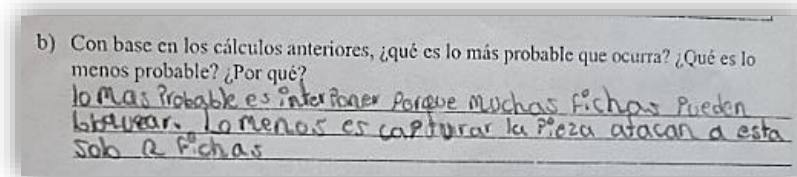 b) Con base en los cálculos anteriores, ¿qué es lo más probable que ocurra? ¿Qué es lo
menos probable? ¿Por qué?
lo mas Probable es interponer Porque muchas fichas Pueden
Lo menos es capturar la Pieza atacan a esta
solo 2 fichas